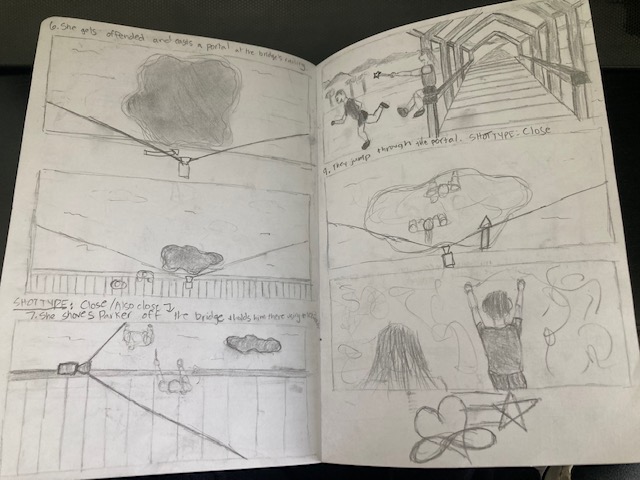 6. She gets offended and opens a portal at the bridge's ending
SHOT TYPE: Close / Also close
7. She shoves Parker off the bridge & holds him there using
9. They jump through the portal. SHOT TYPE - Close